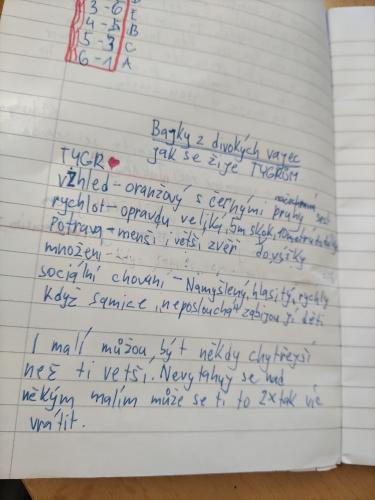 3-6 E
4-5 B
5-3 C
6-1 A
Bajky z divokých vajec
jak se žije TYGRŮM
TYGR ♥
Vzhled - oranžový s černými pruhy
rychlot - opravdu veliký, 5m skok,
Potrava - menší i větší zvěř do výšky
množení -
sociální chování - Namyšlený, hlasitý, rychlý
Když samice "neposlouchá" zabijou jí děti
I malí můžou být někdy chytřejší
než ti vetší. Nevytahuj se nad
někým malím může se ti to 2x tak víc
vrátit.